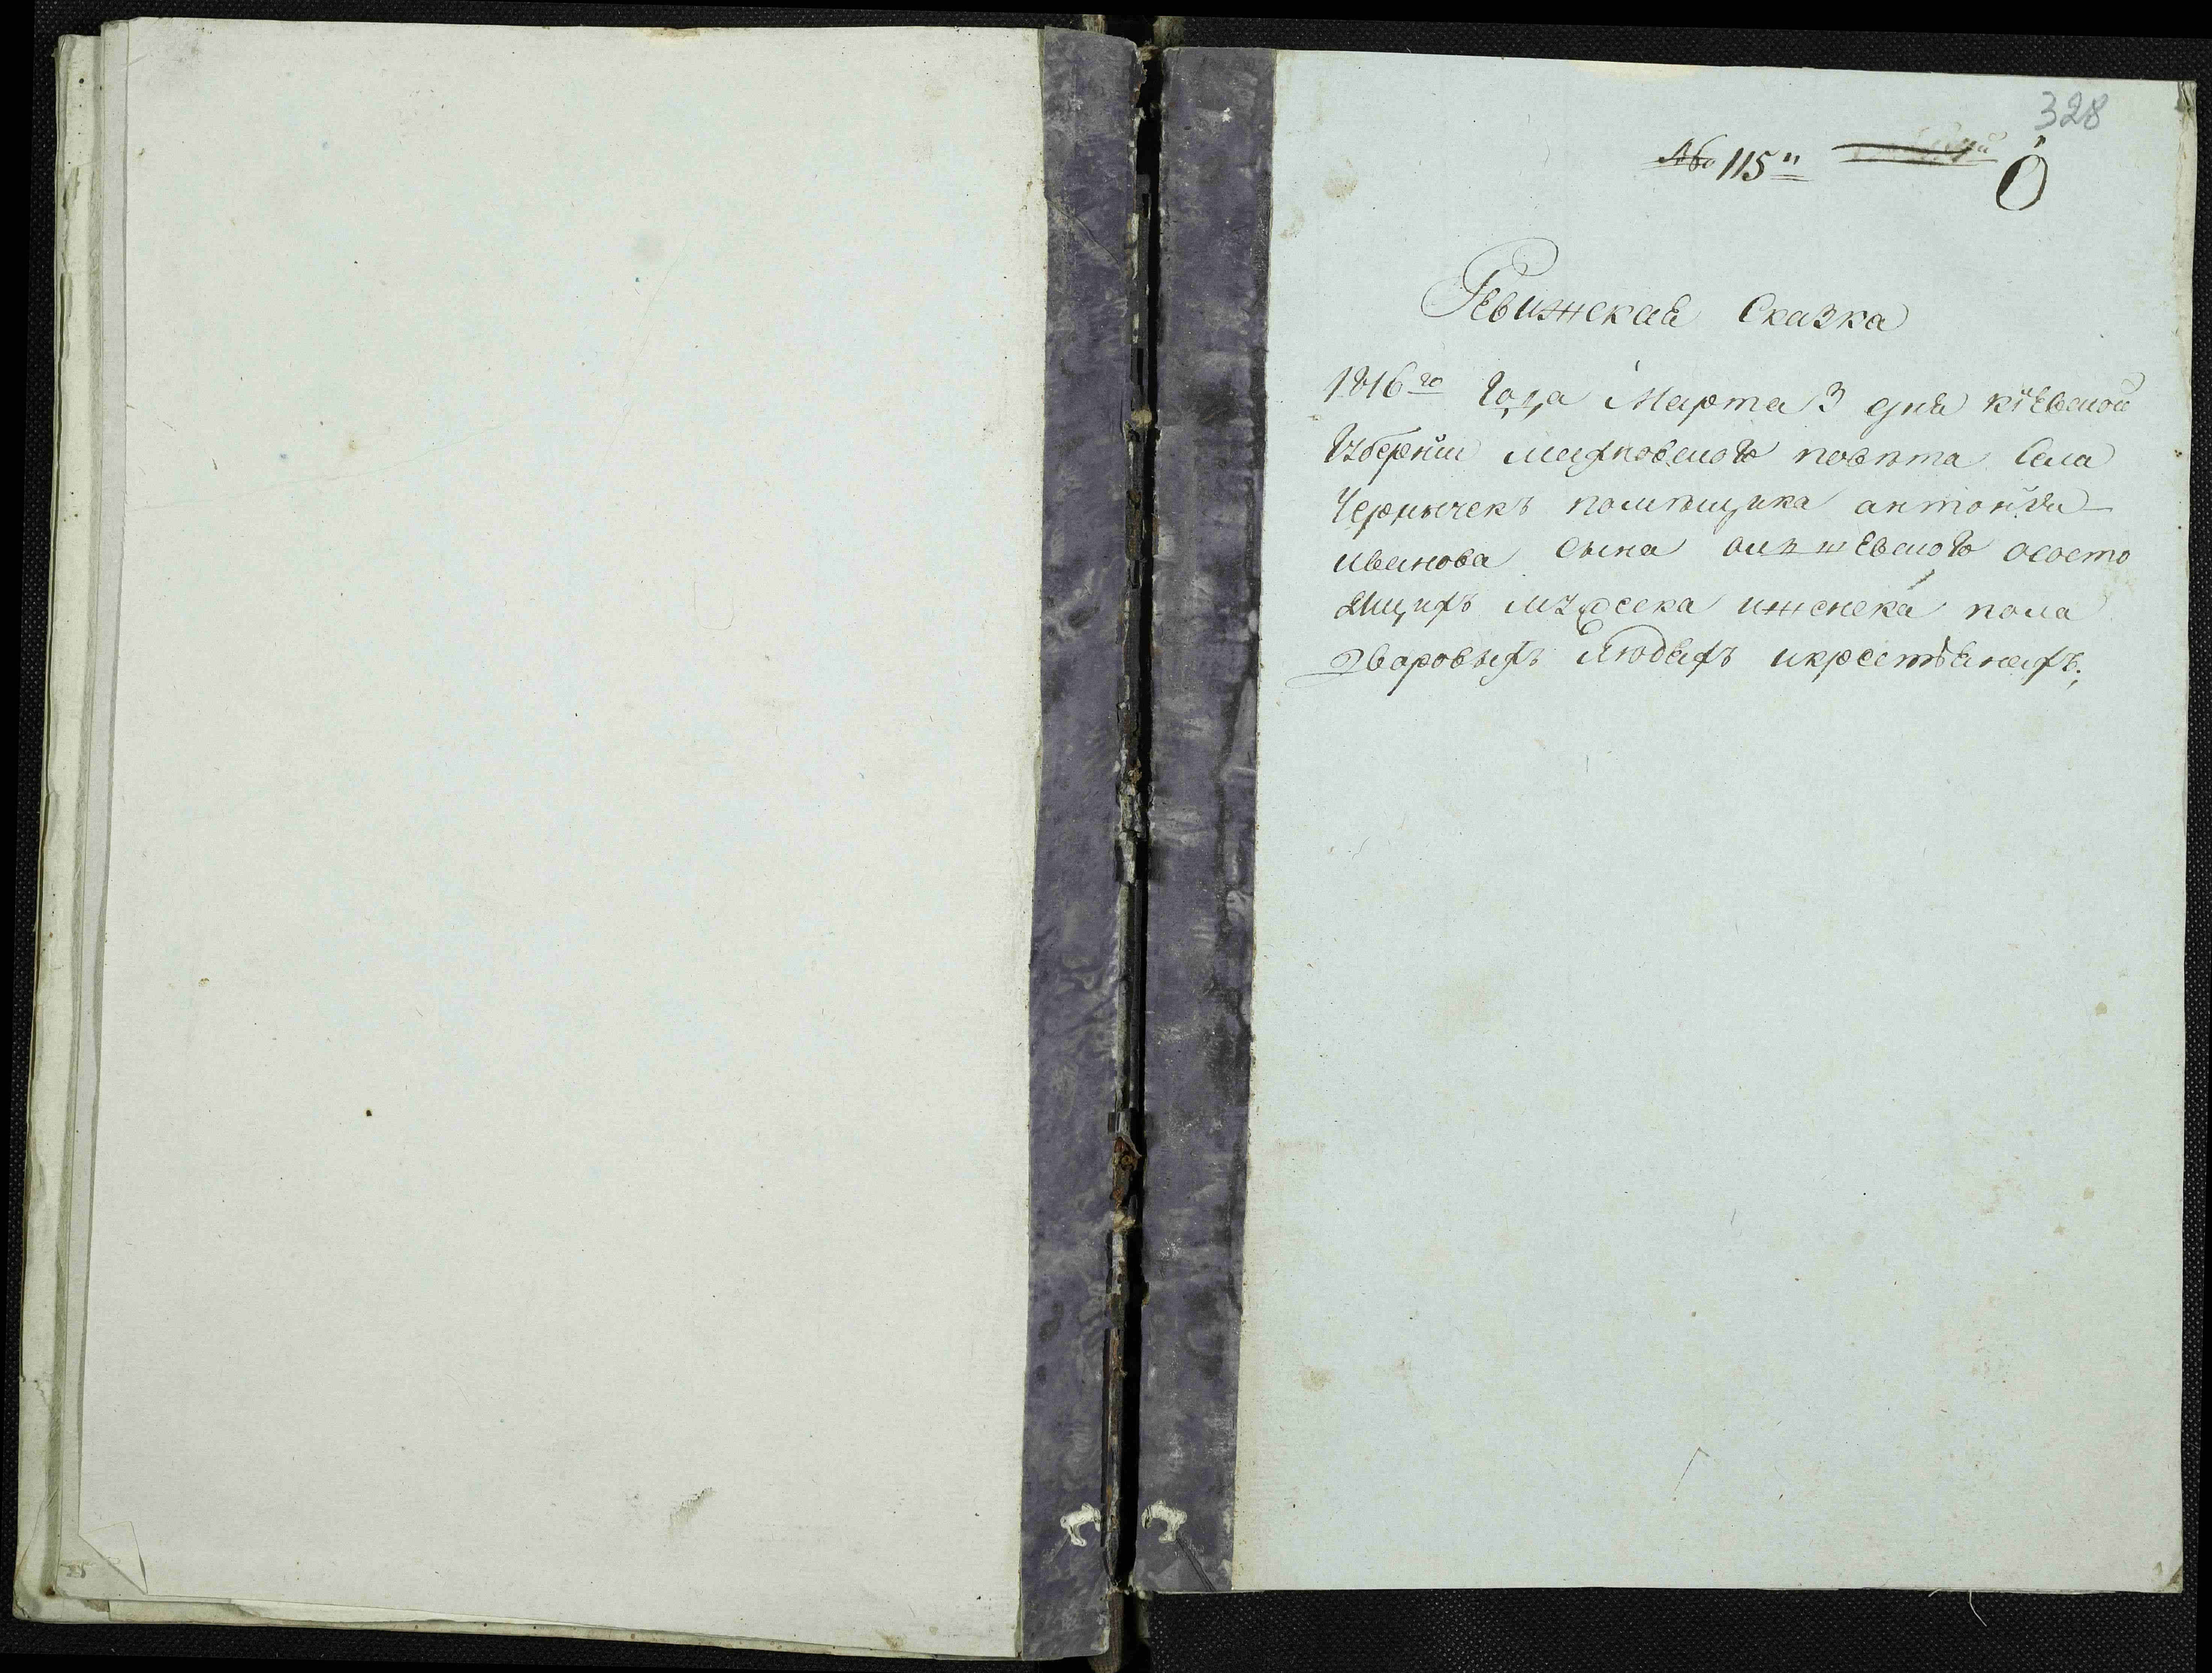 328
№ 115
Ревижская Сказка
1816го года Марта 3 дня кіевской
губерніи махновского повѣта села
Чернычекъ помѣщика антонія
иванова сына осостo
ящихъ мужеска иженска пола
дваровыхъ людехъ икрестьянехъ;